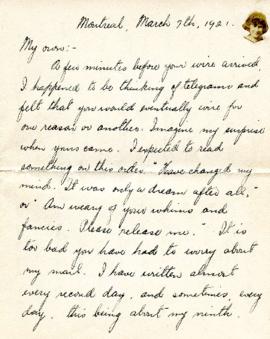 Montreal, March 7th, 1921.
My own:-
A few minutes before your wire arrived
I happened to be thinking of telegrams and
felt that you would eventually wire for
one reason or another. Imagine my surprise
when yours came. I expected to read
something on this order. "Have changed my
mind. It was only a dream after all,"
or "Am weary of your whims and
fancies. Please release me." It is
too bad you have had to worry about
my mail. I have written almost
every second day, and sometimes, every
day, this being about my ninth.